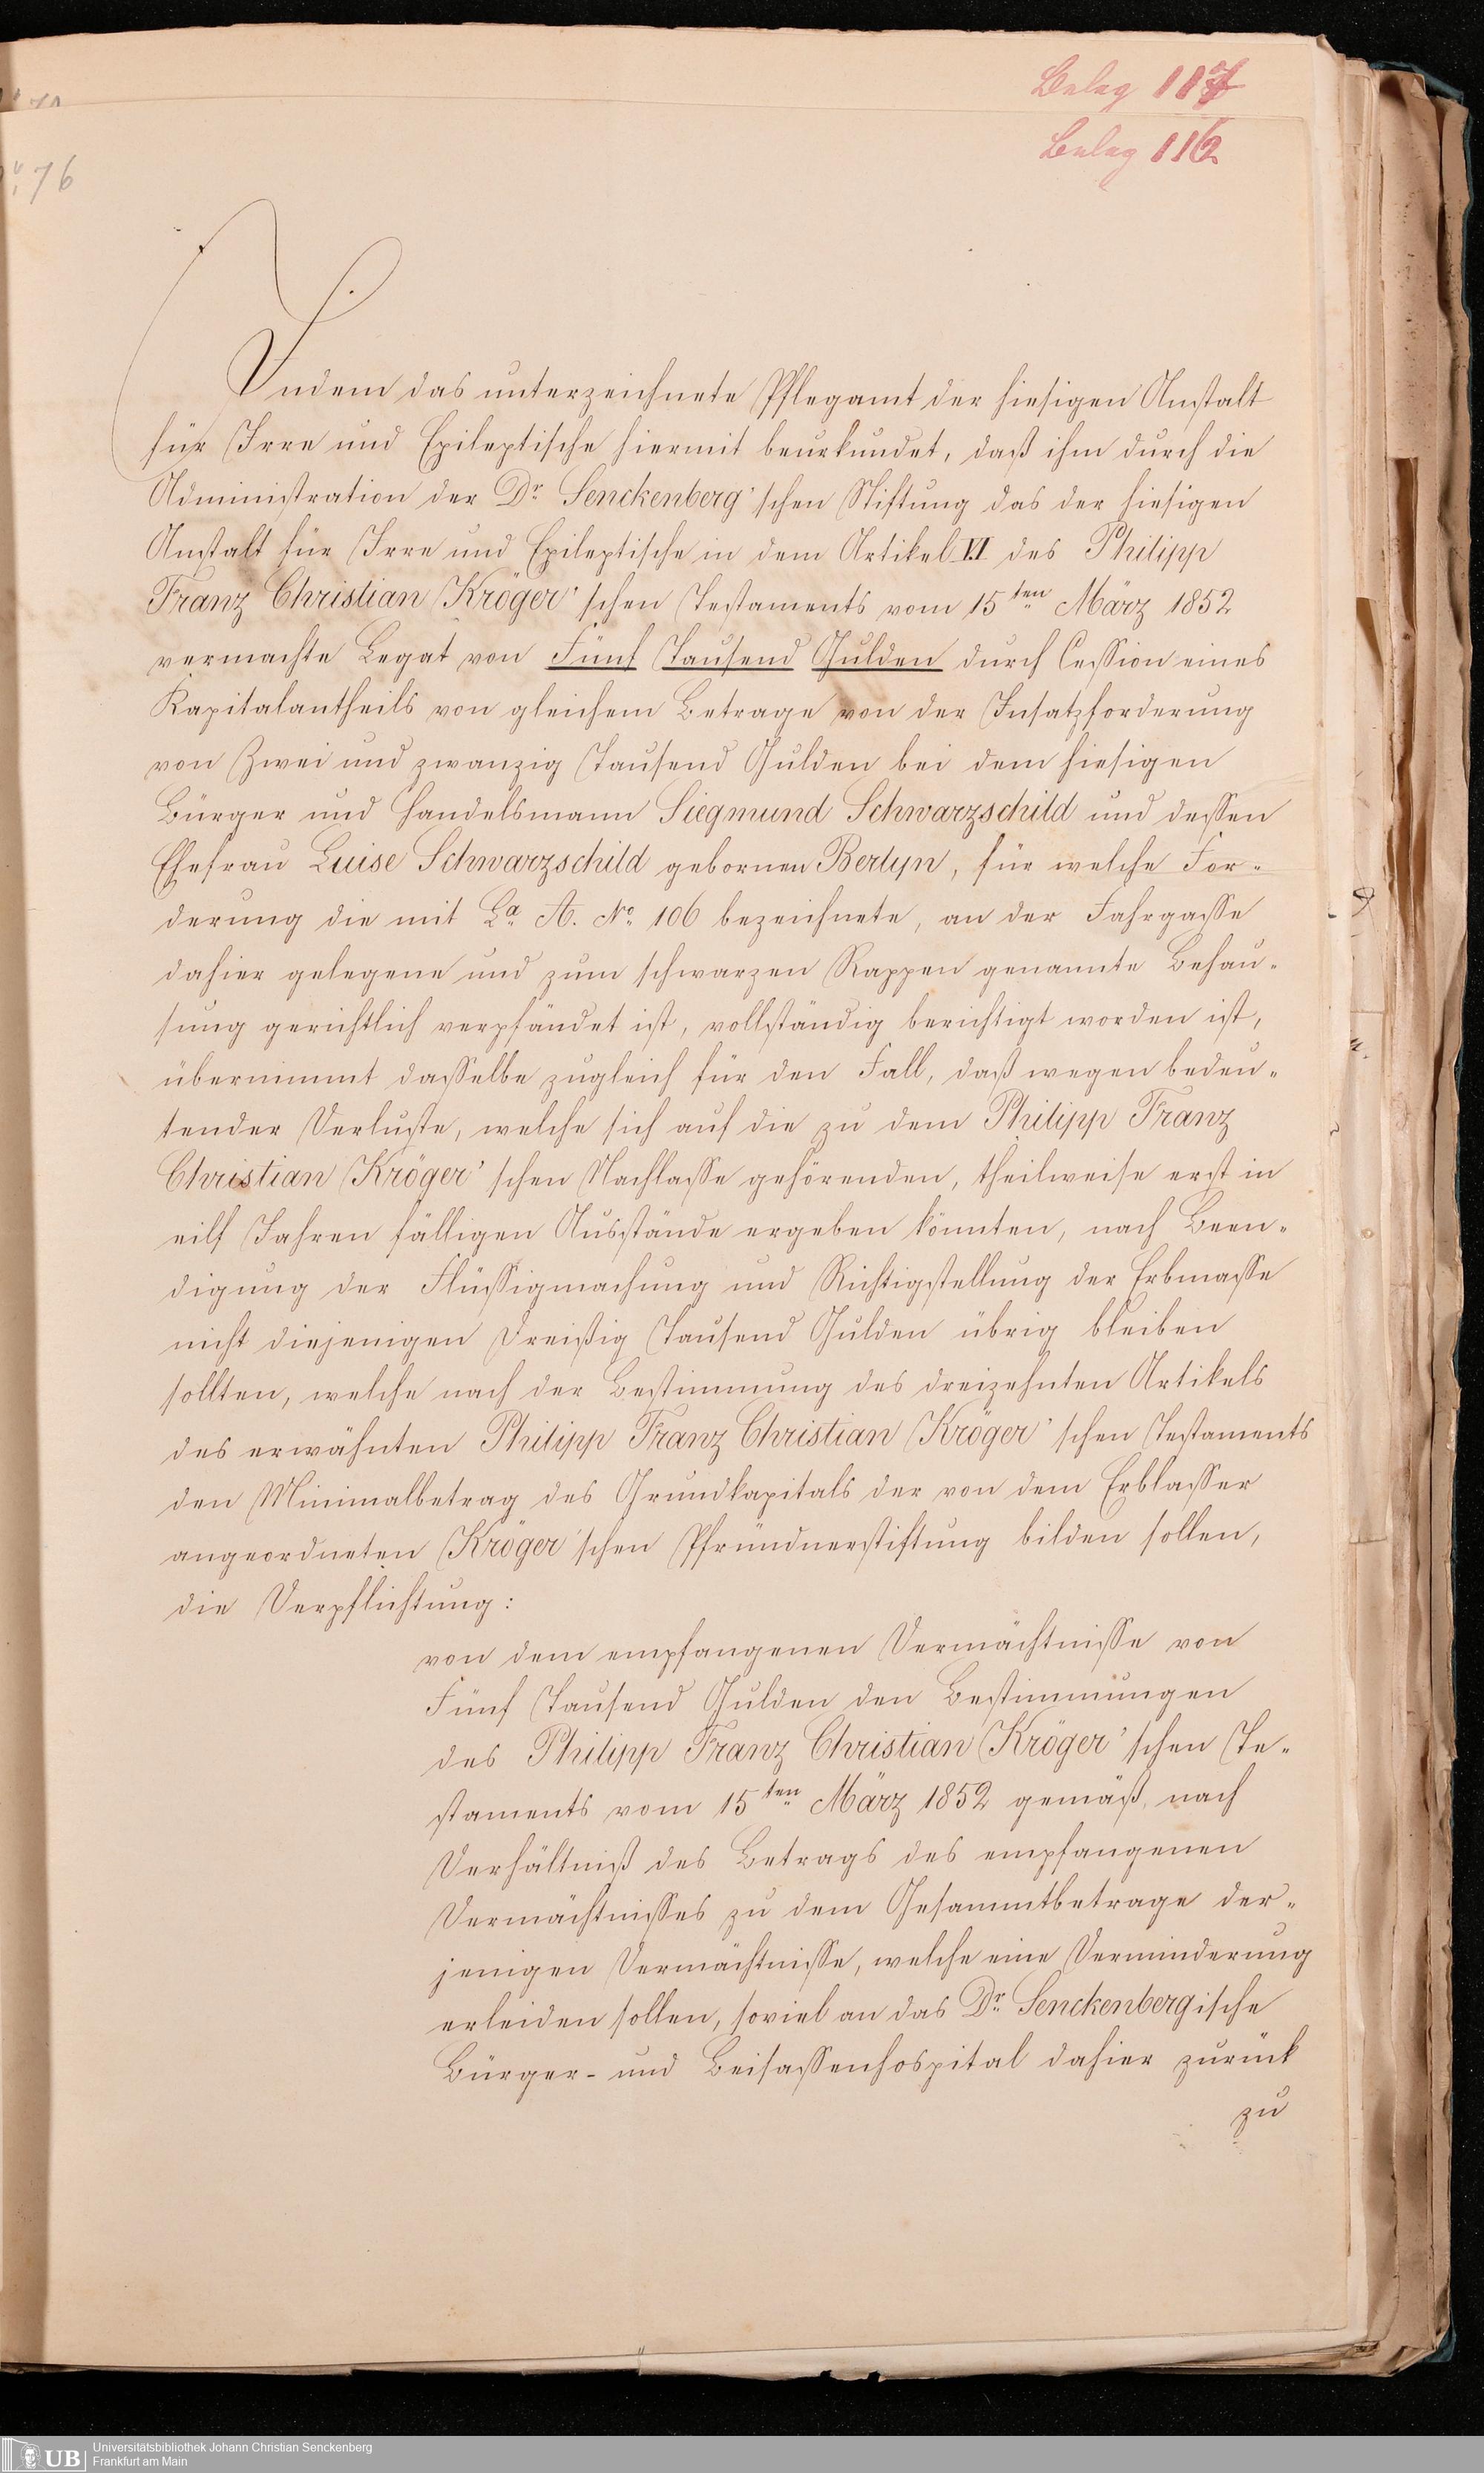 Beleg 117
Beleg 116
76
Indem das unterzeichnete Pflegamt der hiesigen Anstalt
für Irre und Epileptische hiermit beurkundet, daß ihm durch die
Administration der Dr. Senckenberg'schen Stiftung das der hiesigen
Anstalt für Irre und Epileptische in dem Artikel VI des Philipp
Franz Christian Kröger'schen Testaments vom 15ten März 1852
vermachte Legat von Fünf Tausend Gulden durch Cession eines
Kapitalantheils von gleichem Betrage von der Insatzforderung
von Zwei und zwanzig Tausend Gulden bei dem hiesigen
Bürger und Handelsmann Siegmund Schwarzschild und dessen
Ehefrau Luise Schwarzschild gebornen Berlyn, für welche For-
derung die mit La. A. No. 106 bezeichnete, an der Fahrgasse
dahier gelegene und zum schwarzen Rappen genannte Behau-
sung gerichtlich verpfändet ist, vollständig berichtigt worden ist,
übernimmt dasselbe zugleich für den Fall, daß wegen bedeu-
tender Verluste, welche sich auf die zu dem Philipp Franz
Christian Kröger'schen Nachlasse gehörenden, theilweise erst in
eilf Jahren fälligen Ausstände ergeben könnten, nach Been-
digung der Flüssigmachung und Richtigstellung der Erbmasse
nicht diejenigen Dreißig Tausend Gulden übrig bleiben
sollten, welche nach der Bestimmung des dreizehnten Artikels
des erwähnten Philipp Franz Christian Kröger'schen Testaments
den Minimalbetrag des Grundkapitals der von dem Erblasser
angeordneten Kröger'schen Pfründnerstiftung bilden sollen,
die Verpflichtung:
von dem empfangenen Vermächtnisse von
Fünf Tausend Gulden den Bestimmungen
des Philipp Franz Christian Kröger'schen Te-
staments vom 15ten März 1852 gemäß, nach
Verhältniß des Betrags des empfangenen
Vermächtnisses zu dem Gesammtbetrage der-
jenigen Vermächtnisse, welche eine Verminderung
erleiden sollen, soviel an das Dr. Senckenbergische
Bürger- und Beisassenhospital dahier zurück
zu
UB
Universitätsbibliothek Johann Christian Senckenberg
Frankfurt am Main